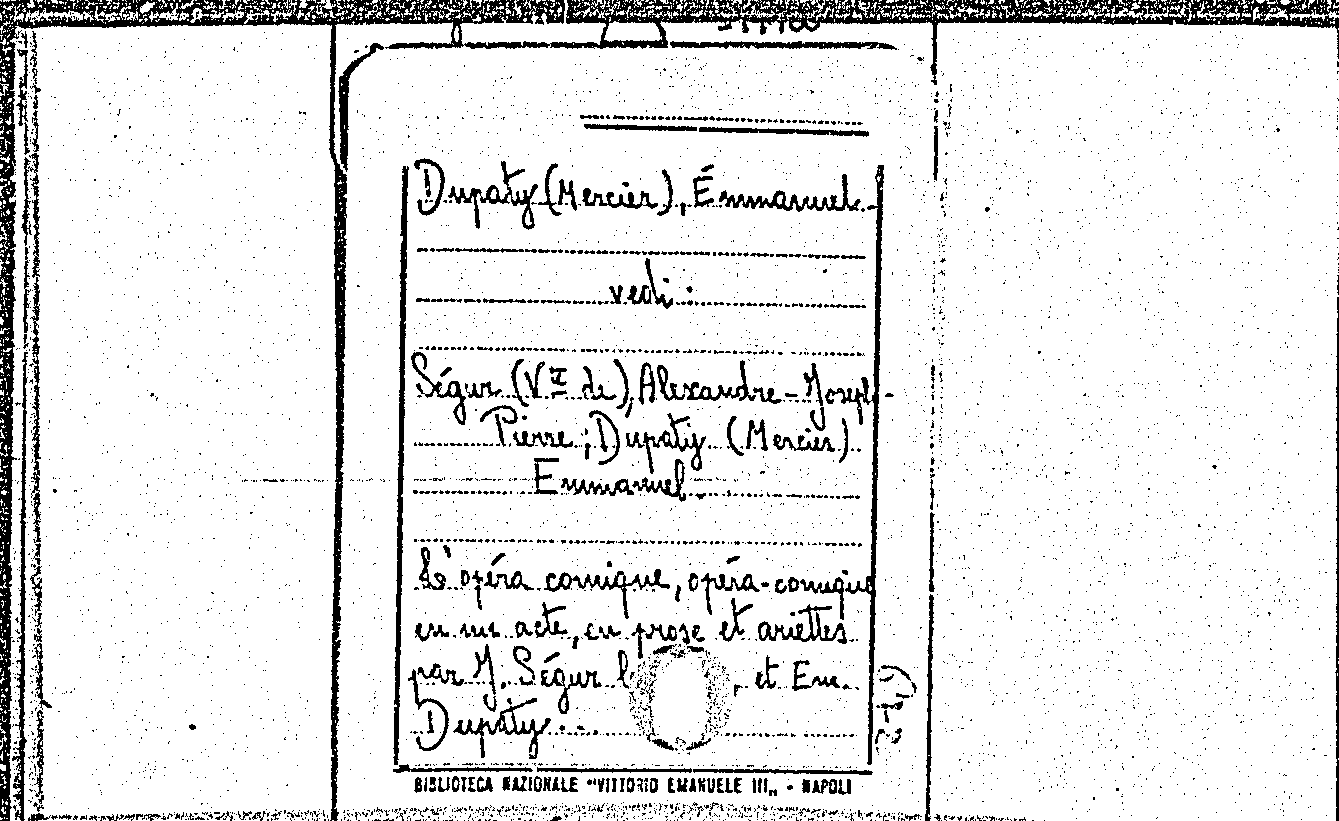 Dupaty (Mercier), Émmanuel-
vedi:
Ségur (Vte de), Alexandre-Joseph-
Pierre; Dupaty (Mercier)
Emmanuel.
L'opéra comique, opéra-comique
en un acte, en prose et ariettes
par J. Ségur et Em.
Dupaty...
BIBLIOTECA NAZIONALE "VITTORIO EMANUELE III„ - NAPOLI